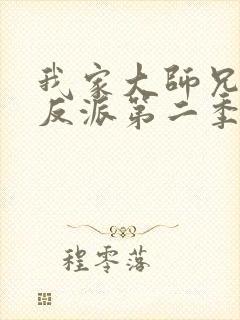 我家大師兄
反派第二季
程零落